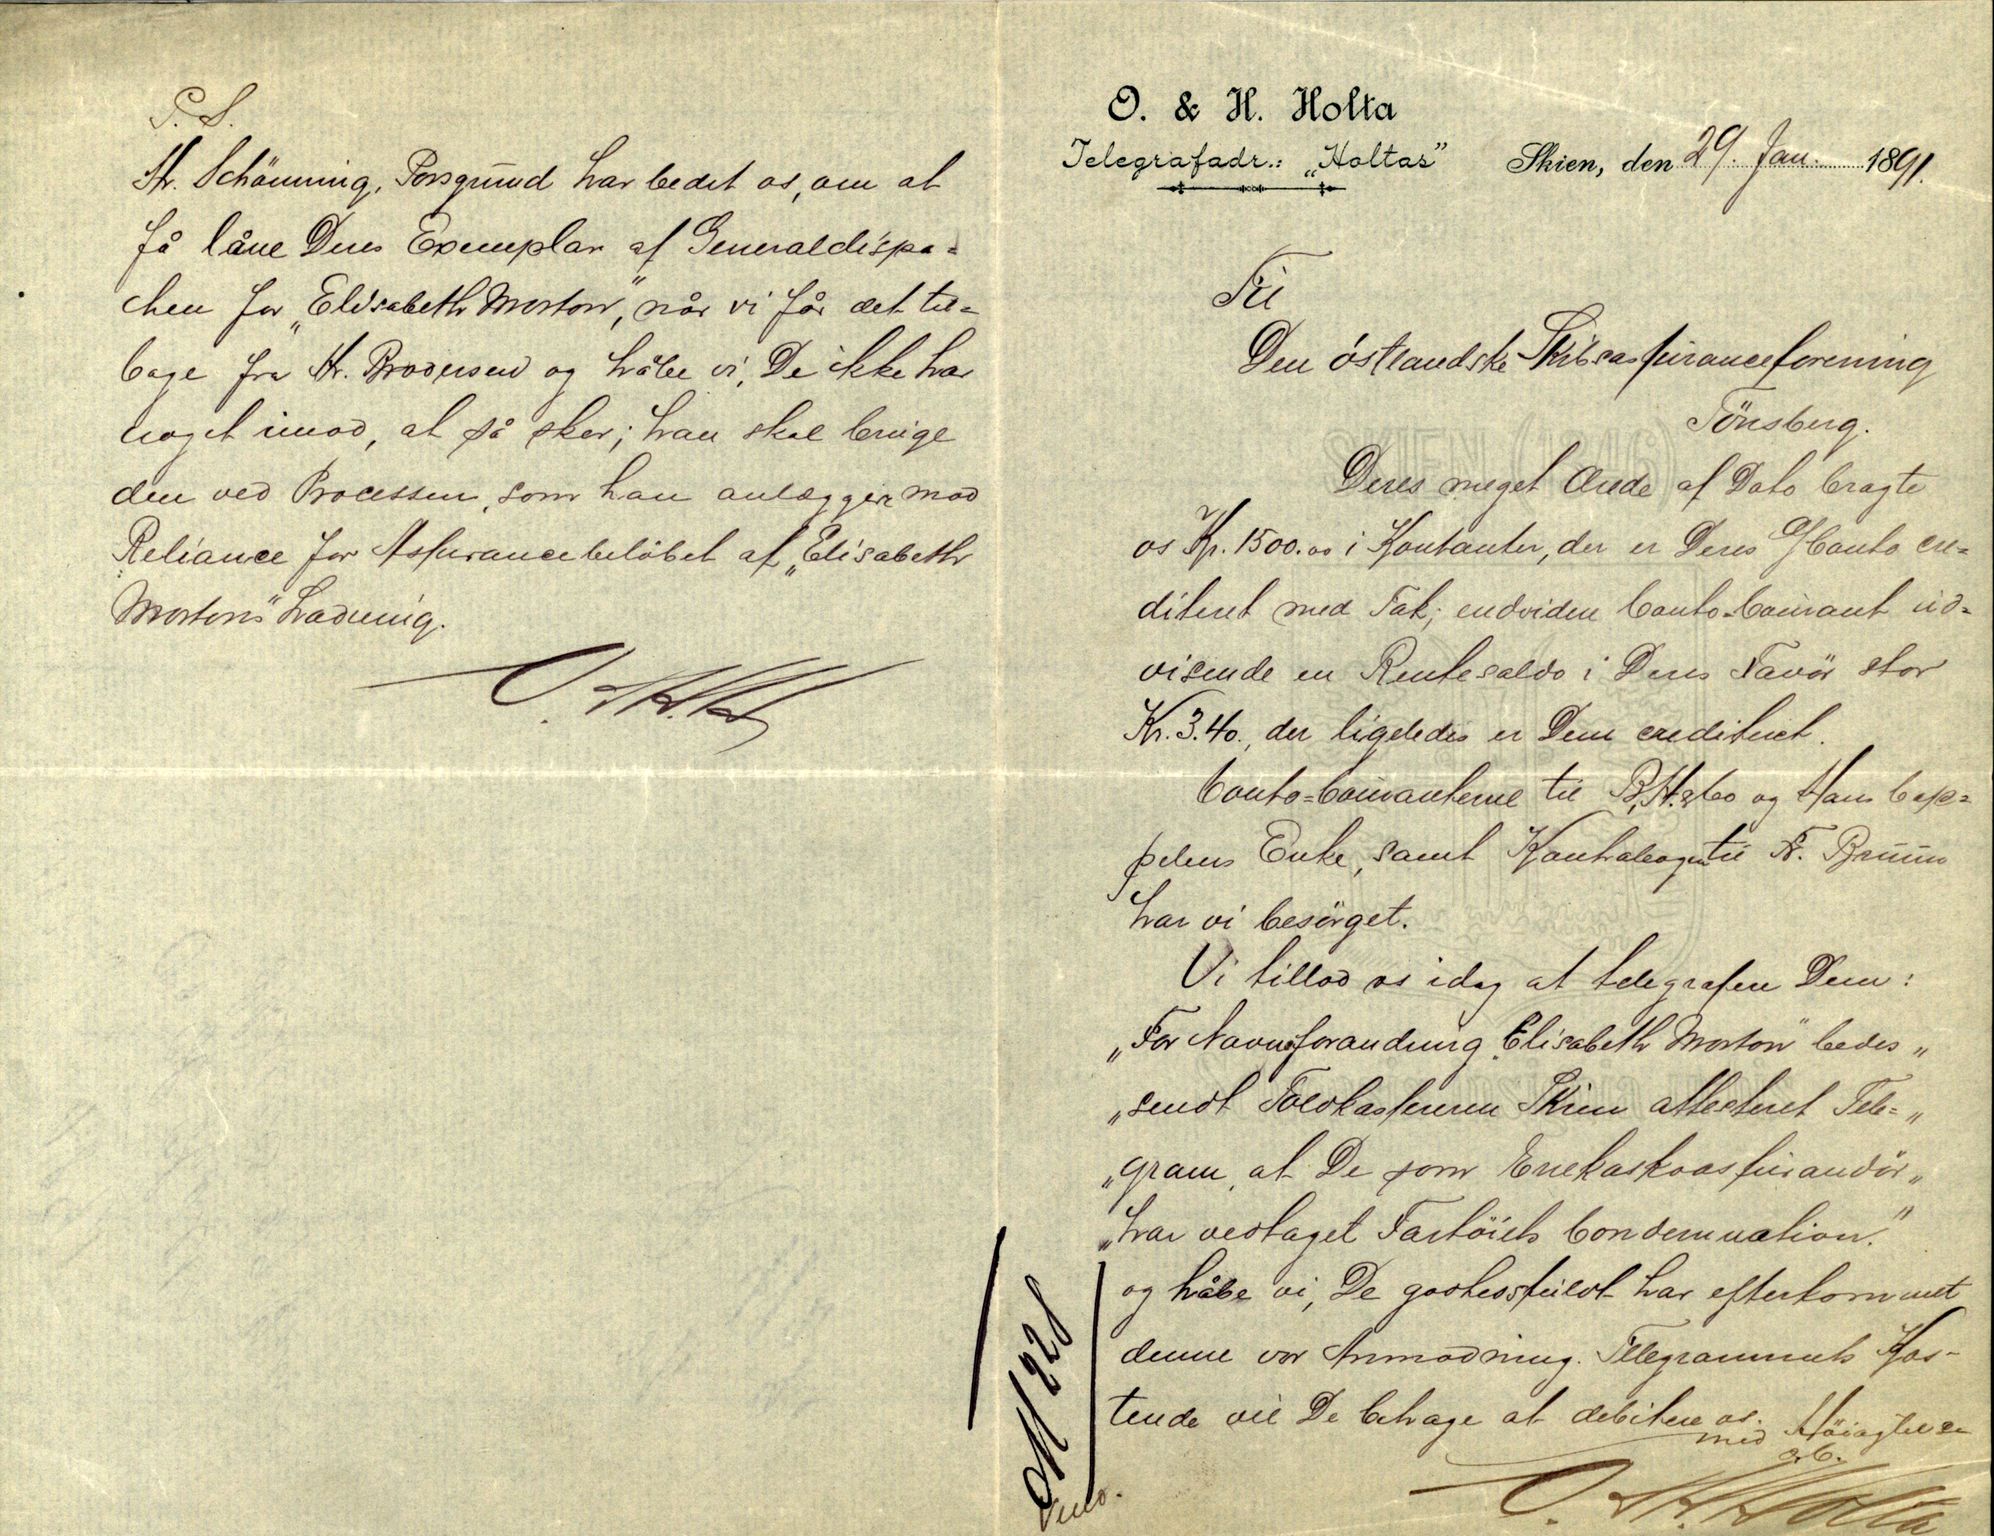 O. & H. Holta
Telegrafadr.: „Holtas”
Skien, den 29. Jan. 1891.
Til
Den östlandske Skibsassuranceforening
Tönsberg.
Deres meget Ærede af Dato bragte
os Kr. 1500.00 i Kontanter, der er Deres Conto cre=
diteret med Tak; endvidere Conto-Courant ud=
visende en Rentesaldo i Deres Favör stor
Kr. 3.40., der ligeledes er Dem crediteret.
Conto=Couranterne til B, H. & Co og Hans Cap=
pelens Enke, samt Kontrabogen til Fr. Bruun
har vi besörget.
Vi tillod os idag at telegrafere Dem:
„For Navneforandring „Elisabeth Morton” bedes „
„sendt Toldkasserern Skien attesteret Tele= „
„gram, at De som Enekaskoassurandör „
„har vedtaget Fartöiets Condemnation.”
og håbe vi, De godhedsfuldt har efterkommet
denne vor Anmodning. Telegrammets Kos-
tende vil De behage at debitere os.
med Höiagtelse
O. H. Holta
M 228
P. S.
Hr. Schönning, Porsgrund har bedet os, om at
få låne Deres Exemplar af Generaldispa=
chen for „Elisabeth Morton”, når vi får det til=
bage fra Hr. Brodersen og håbe vi, De ikke har
noget imod, at så sker; han skal bruge
den ved Processen, som han anlægger mod
Reliance for Assurancebelöbet af „Elisabeth
Mortons” Ladning.
SKIEN (1846)